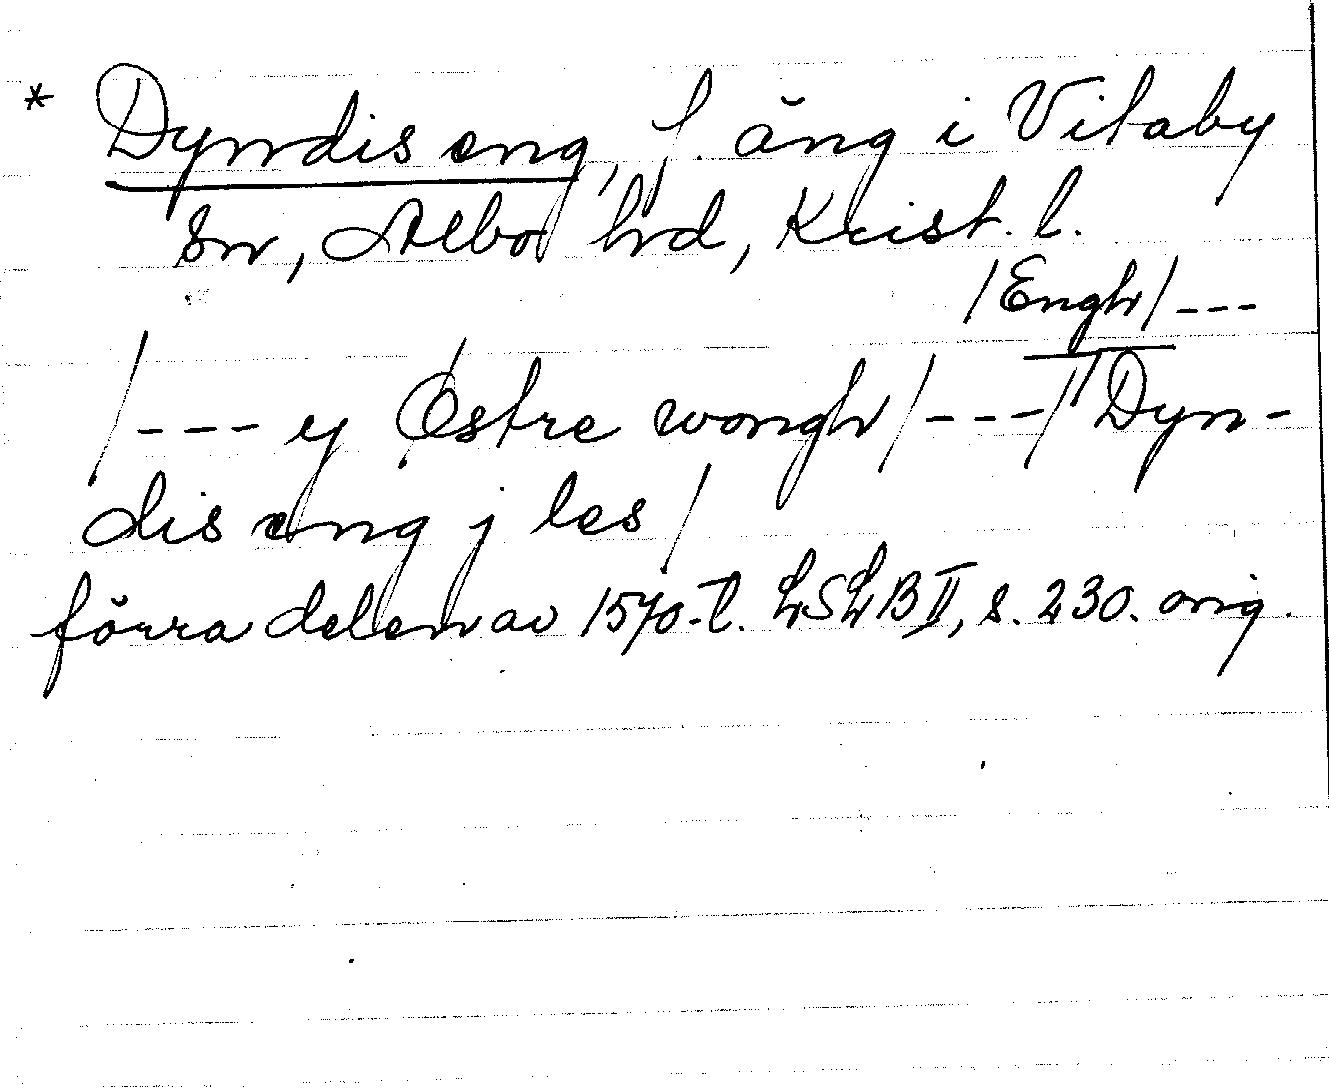 * Dyndis eng, f. äng i Vitaby
sn, Albo hd, Krist. l.
/Engh/ ---
/--- y Østre wongh/ ---/ Dyn-
dis eng j les/
förra delen av 1570-t. LSLB II, s. 230. orig.